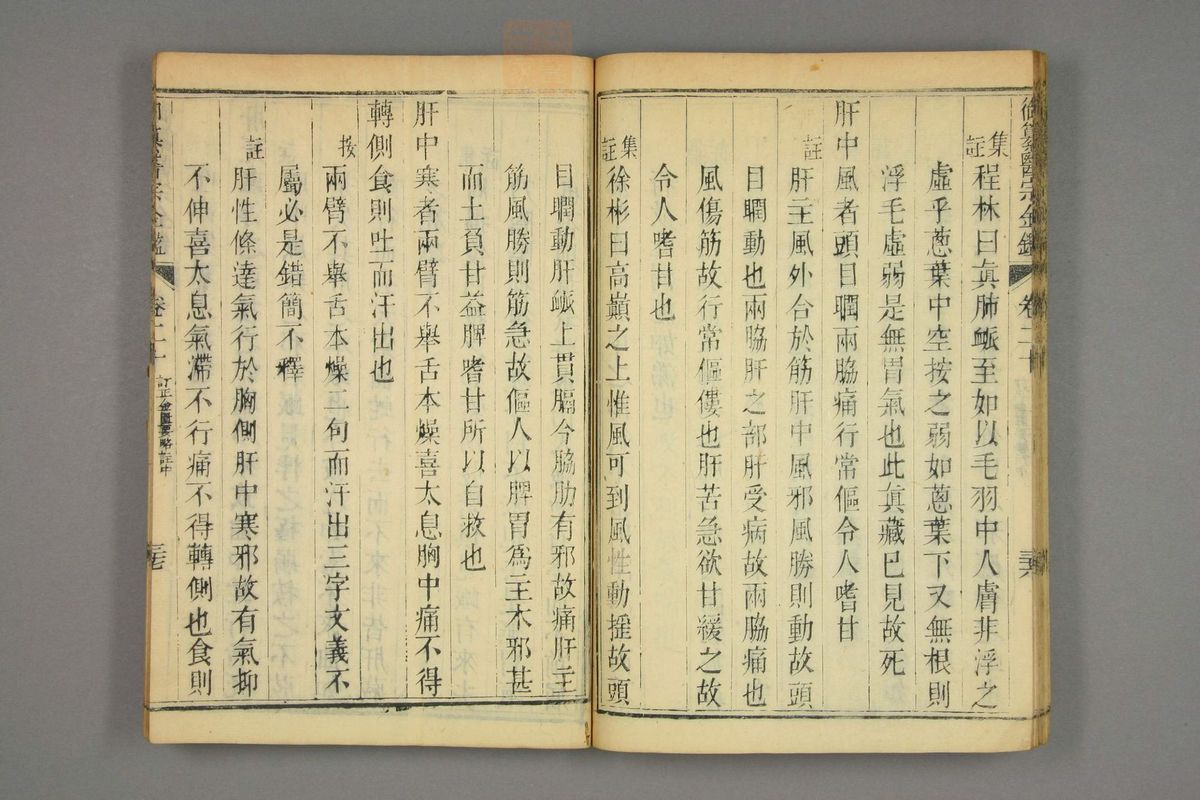 御纂醫宗金鑑 卷二十
集註 程林曰眞肺䘑至如以毛羽中人膚非浮之
虛乎蔥葉中空按之弱如蔥葉下又無根則
浮毛虛弱是無胃氣也此眞藏已見故死
肝中風者頭目瞤兩脇痛行常傴令人嗜甘
註 肝主風外合於筋肝中風邪風勝則動故頭
目瞤動也兩脇肝之部肝受病故兩脇痛也
風傷筋故行常傴僂也肝苦急欲甘緩之故
令人嗜甘也
集註 徐彬曰高巔之上惟風可到風性動搖故頭
目瞤動肝䘑上貫膈今脇肋有邪故痛肝主
筋風勝則筋急故傴人以脾胃為主木邪甚
而土負甘益脾嗜甘所以自救也
肝中寒者兩臂不舉舌本燥喜太息胸中痛不得
轉側食則吐而汗出也
按 兩臂不舉舌本燥二句而汗出三字文義不
屬必是錯簡不釋
註 肝性條達氣行於胸側肝中寒邪故有氣抑
不伸喜太息氣滯不行痛不得轉側也食則
纂醫宗金鑑 卷二十 訂正金匱要略註中